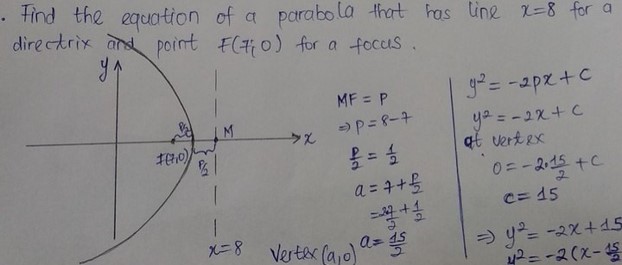 . Find the equation of a parabola that has line x=8 for a
directrix and point F(7;0) for a focus.
y
P/2
M
x
F(7;0)
P/2
x=8
MF = P
⇒ P = 8-7
P/2 = 1/2
a = 7 + P/2
+ 1/2
Vertex (a,0) a = 15/2
y² = -2px + C
y² = -2x + C
at vertex
0 = -2·15/2 + C
C = 15
⇒ y² = -2x + 15
y² = -2(x - 15/2